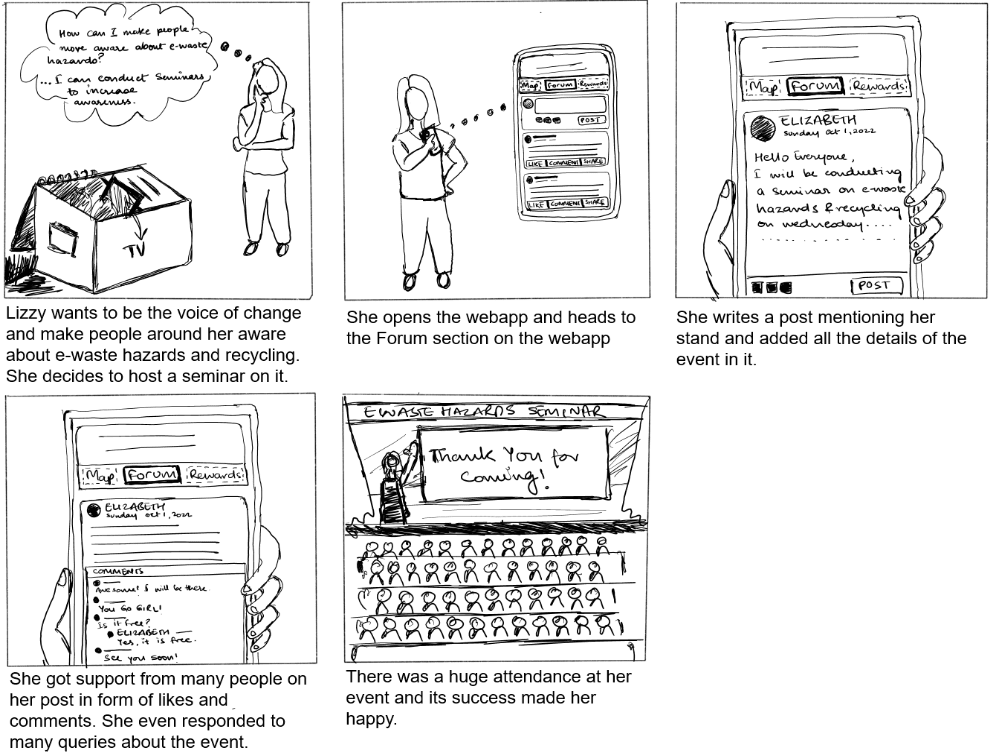 How can I make people
more aware about e-waste
hazards?
...I can conduct Seminars
to increase
awareness.
TV
Lizzy wants to be the voice of change
and make people around her aware
about e-waste hazards and recycling.
She decides to host a seminar on it.
Map Forum Rewards
POST
LIKE COMMENT SHARE
LIKE COMMENT SHARE
She opens the webapp and heads to
the Forum section on the webapp
Map Forum Rewards
ELIZABETH
Sunday Oct 1, 2022
Hello Everyone,
I will be conducting
a seminar on e-waste
hazards & recycling
on wednesday....
POST
She writes a post mentioning her
stand and added all the details of the
event in it.
Map Forum Rewards
ELIZABETH
Sunday Oct 1, 2022
COMMENTS
Awesome! I will be there.
You Go GIRL!
Is it free?
ELIZABETH
Yes, it is free.
See you soon!
She got support from many people on
her post in form of likes and
comments. She even responded to
many queries about the event.
EWASTE HAZARDS SEMINAR
Thank You for
Coming!
There was a huge attendance at her
event and its success made her
happy.